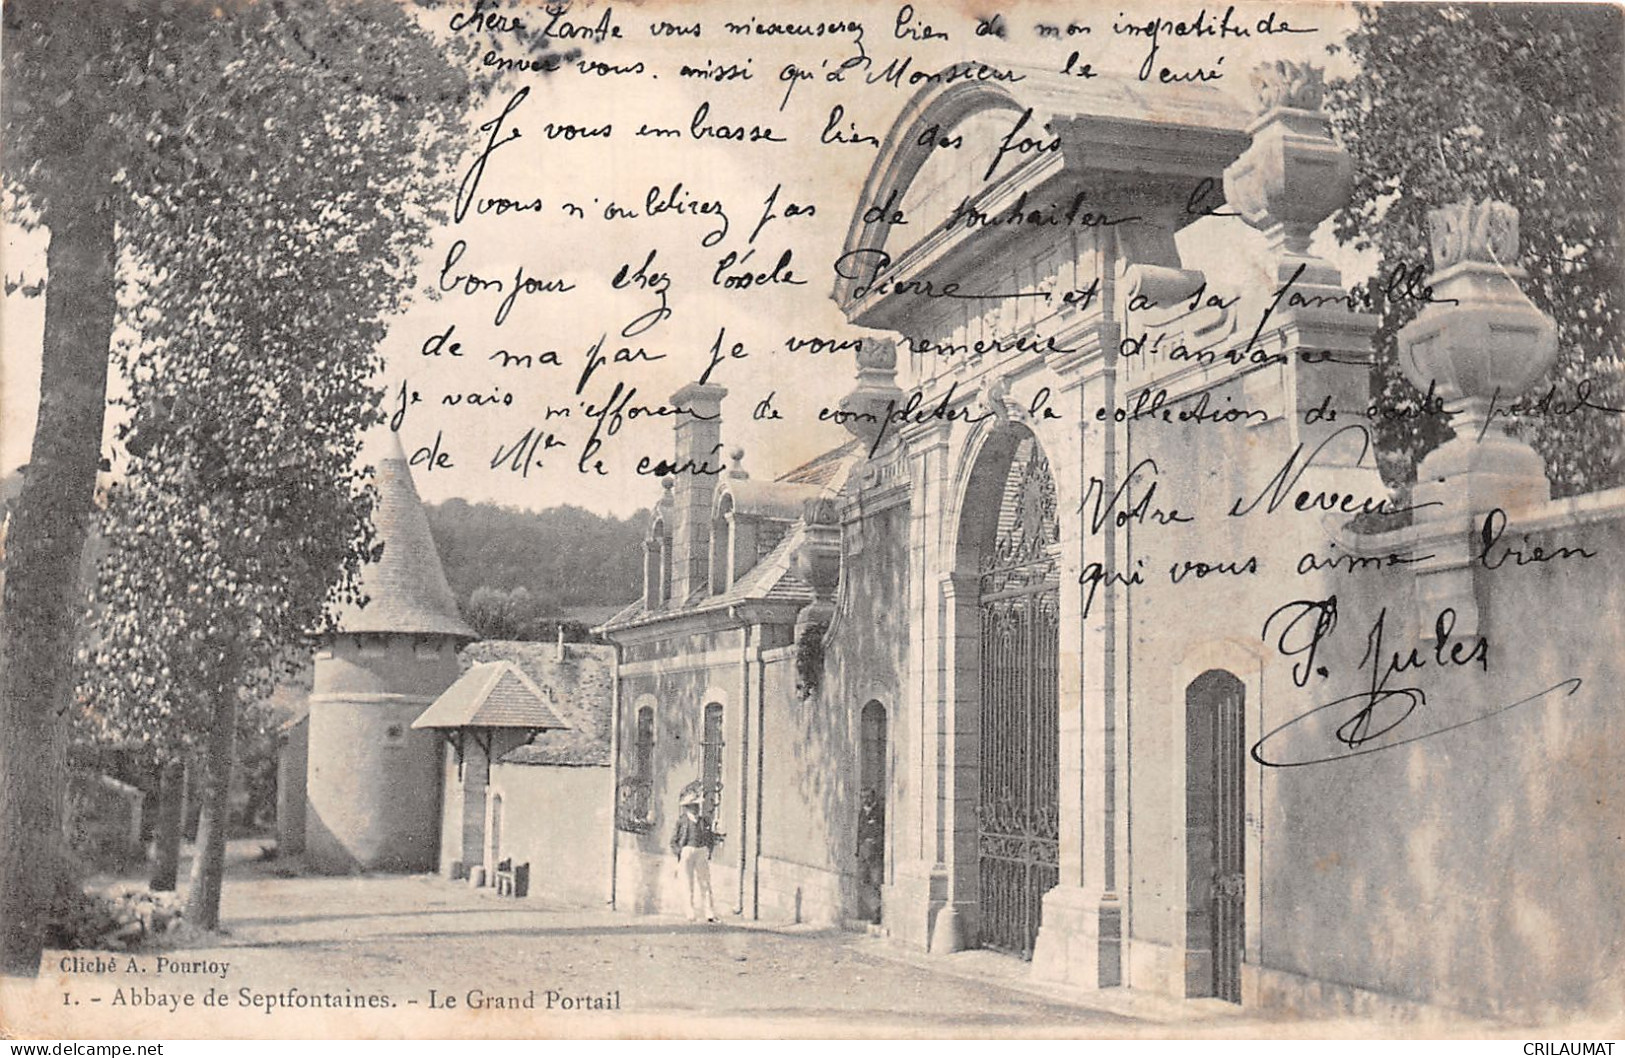 chère Tante vous m'excuserez bien de mon ingratitude
enver vous. ainssi qu'à Monsieur le curé
Je vous embrasse bien des fois
vous n'ouldirez pas de souhaiter le
bonjour chez l'oncle Pierre et a sa famille
de ma par je vous remercie d'anvance
je vais m'efforcer de completer la collection de carte postal
de Mr. le curé
Votre Neveu
qui vous aime bien
P. Jules
Cliché A. Pourtoy
1. - Abbaye de Septfontaines. - Le Grand Portail
delcampe.net
CRILAUMAT